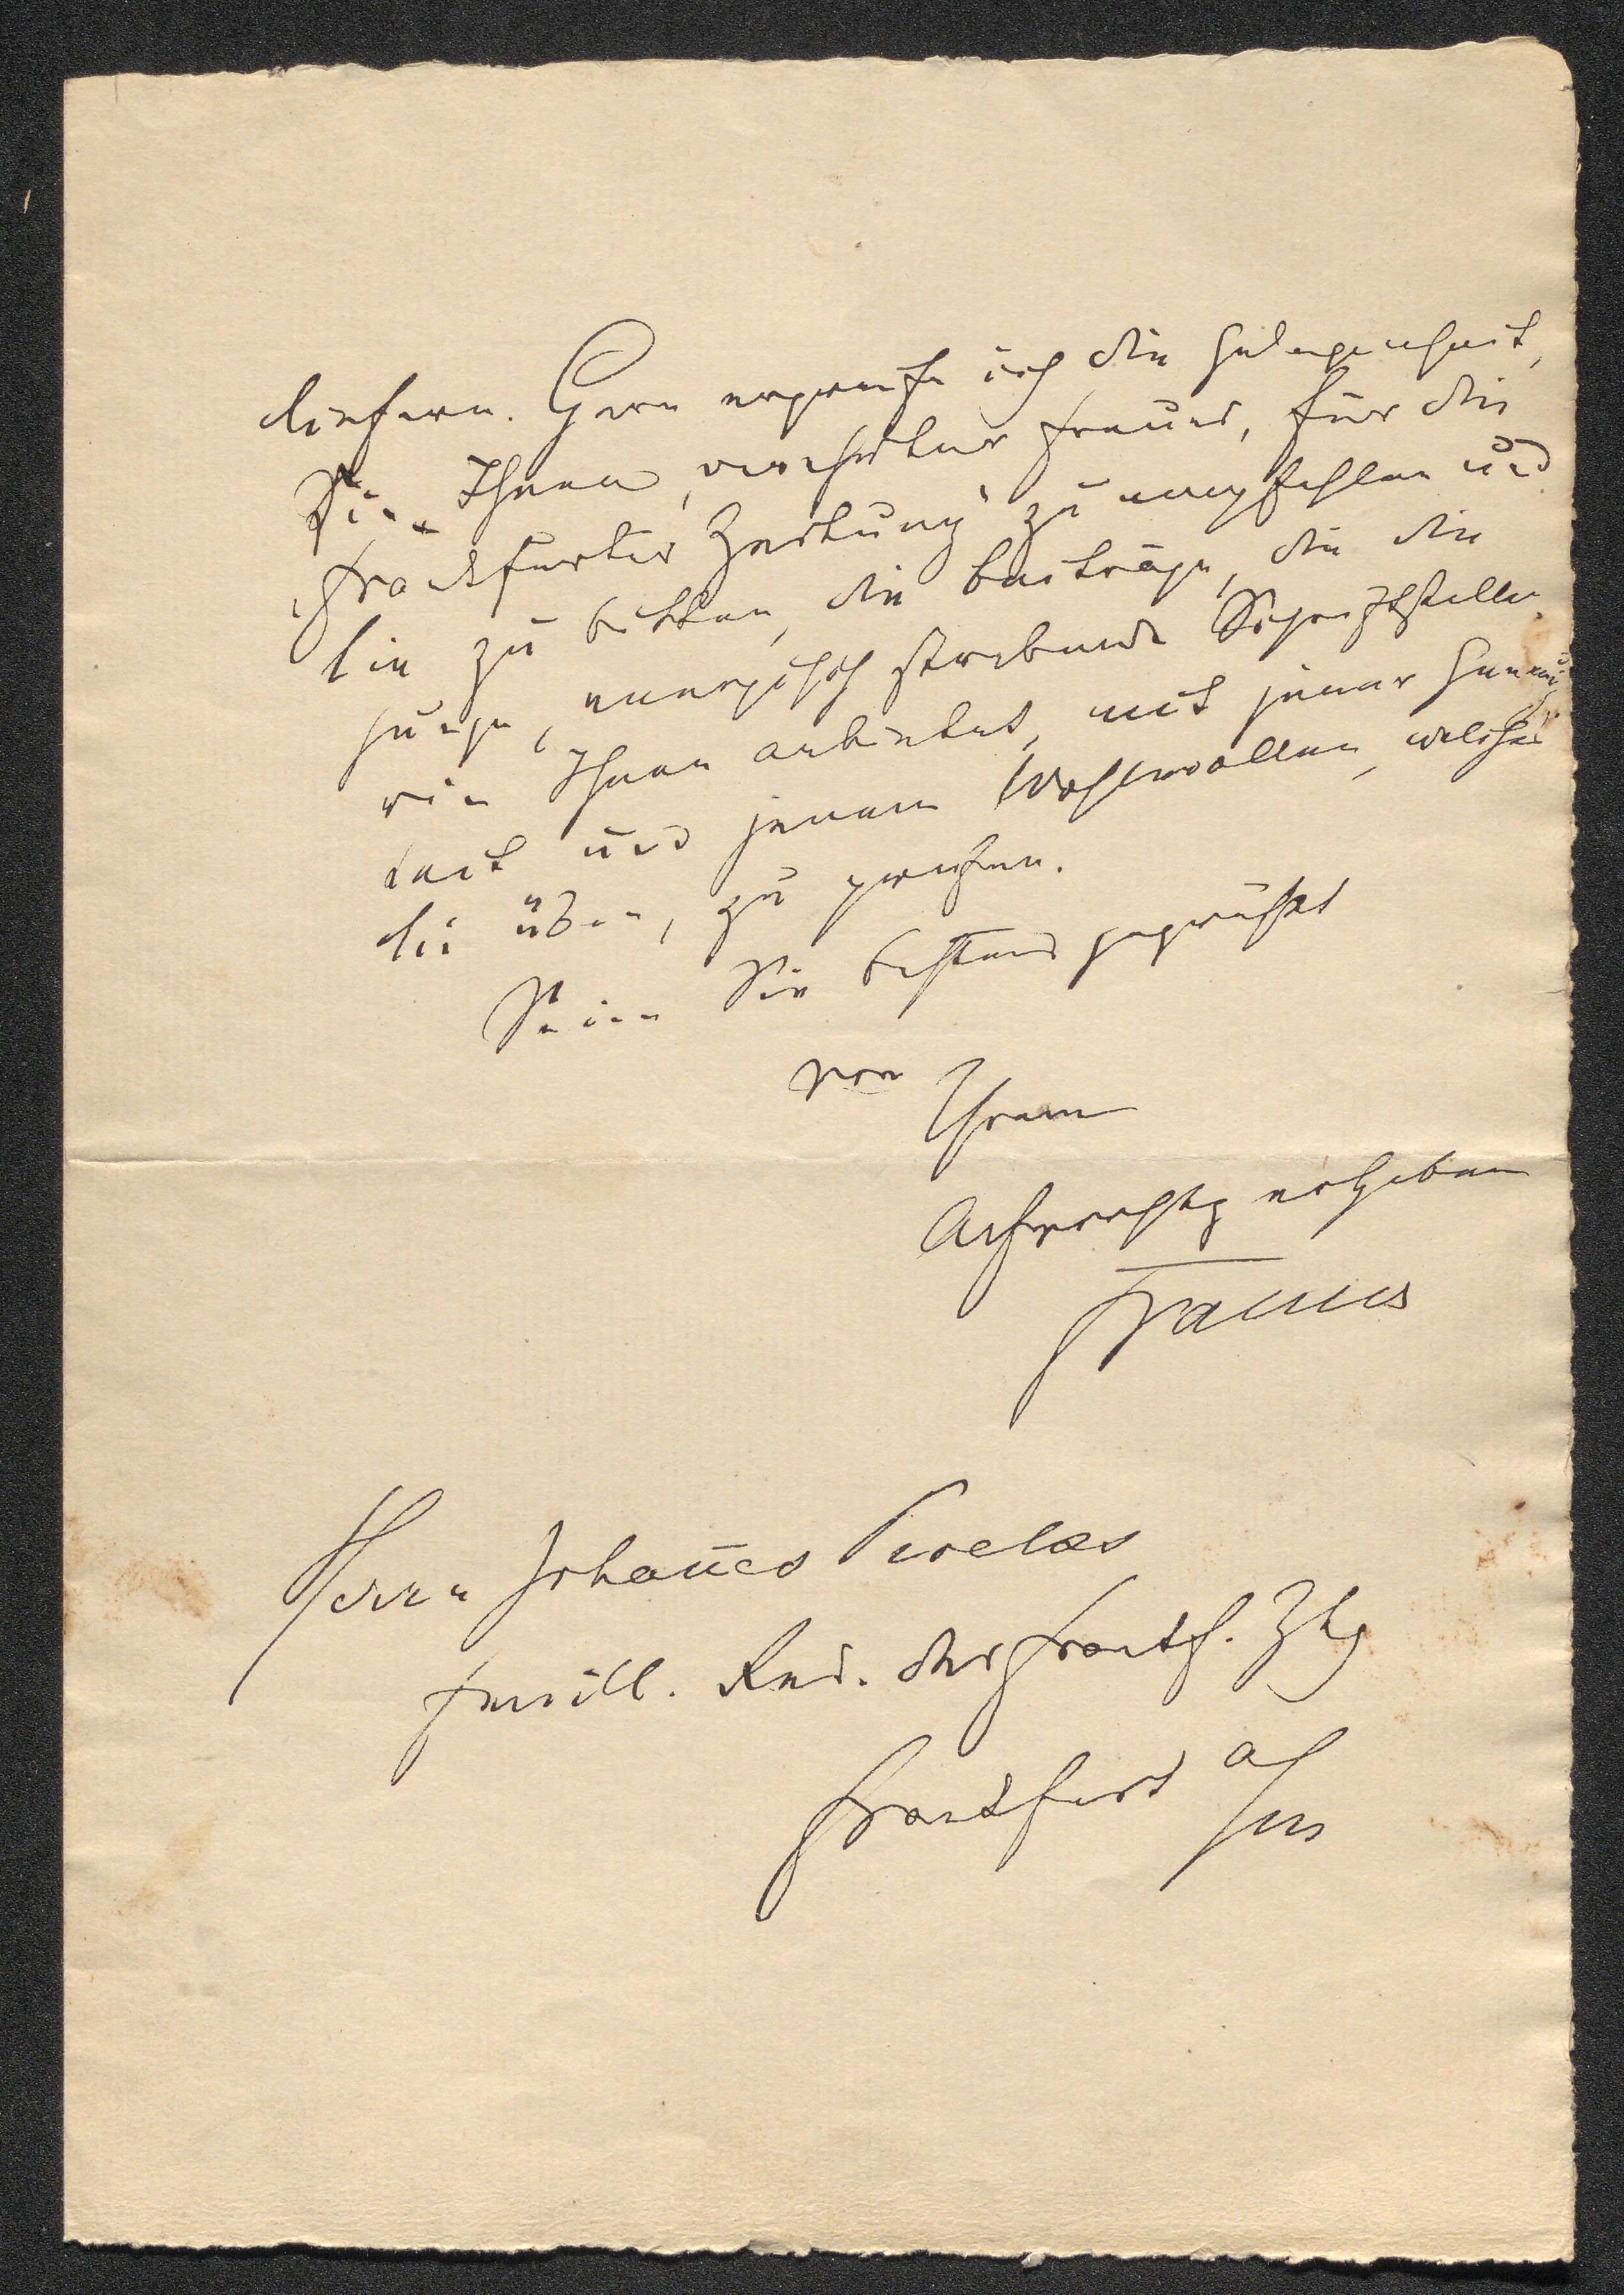 liefern. Gern ergreife ich die Gelegenheit,
Sie Ihnen, verehrter Freund, für die
„Frankfurter Zeitung" zu empfehlen und
Sie zu bitten, die Beiträge, die die
junge, energisch strebende Schriftstelle-
rin Ihnen anbietet, mit jener
und jenem Wohlwollen, welches
Sie üben, zu prüfen.
Seien Sie bestens gegrüßt
von
Ihrem
ergebenen

Herrn Johannes Proelss
Feuill. Red. der Frankf. Ztg
Frankfurt a/M